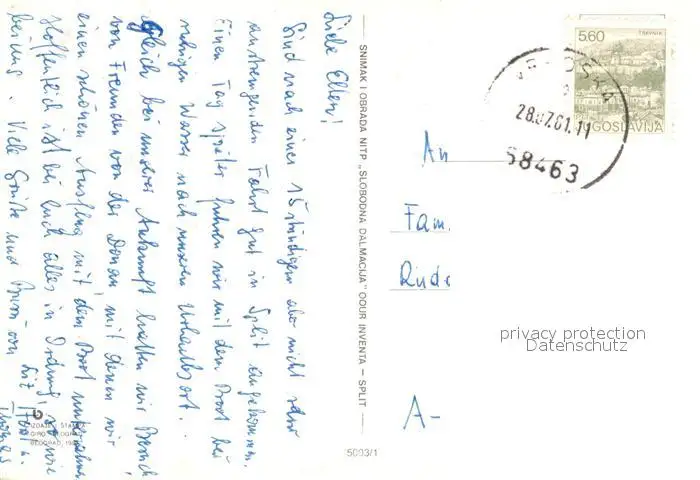 Liebe Eltern!
Sind nach einer 15 stündigen aber nicht sehr
anstrengenden Fahrt gut in Split angekommen.
Einen Tag später fuhren wir mit dem Boot bei
ruhigem Wasser nach unserem Urlaubsort.
Gleich bei unserer Ankunft hatten wir Besuch
von Freunden von der Donau, mit denen wir
einen schönen Ausflug mit dem Boot unternahmen
Hoffentlich ist bei Euch alles in Ordnung, so wie
bei uns. Viele Grüße und von
Thomas
SNIMAK I OBRADA NITP „SLOBODNA DALMACIJA" OOUR INVENTA – SPLIT
5093/1
BEOGRAD
5.60
TRAVNIK
JUGOSLAVIJA
28.07.81.11
58463
An
Fam.
A-
privacy protection
Datenschutz